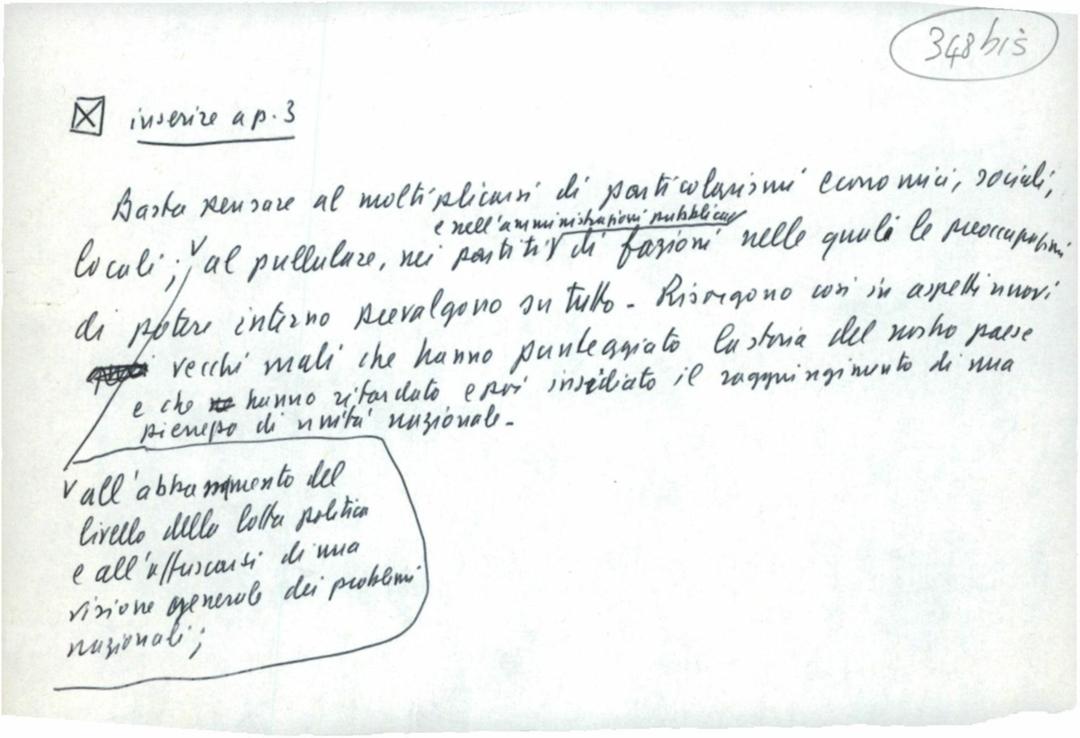 348 bis
inserire a p. 3
Basta pensare al moltiplicarsi di particolarismi economici, sociali,
e nell'amministrazioni pubblica
locali; al pullulare, nei partiti di fazioni nelle quali le preoccupazioni
di potere interno prevalgono su tutto - Risorgono così in aspetti nuovi
vecchi mali che hanno punteggiato la storia del nostro paese
e che hanno ritardato e poi insidiato il raggiungimento di una
pienezza di unità nazionale -
all'abbassamento del
livello della lotta politica
e all'offuscarsi di una
visione generale dei problemi
nazionali;